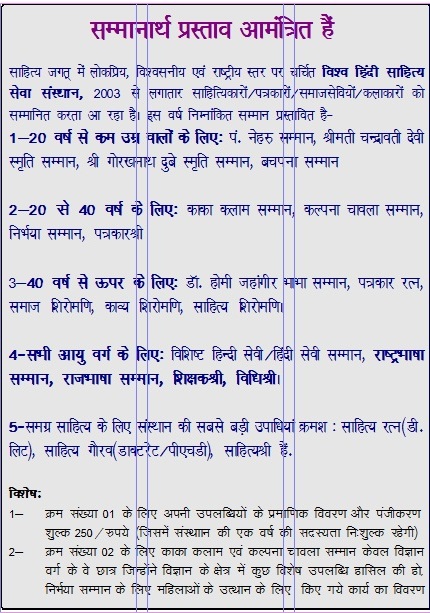 सम्मानार्थ प्रस्ताव आमंत्रित हैं
साहित्य जगत् में लोकप्रिय, विश्वसनीय एवं राष्ट्रीय स्तर पर चर्चित विश्व हिंदी साहित्य
सेवा संस्थान, 2003 से लगातार साहित्यिकारों/पत्रकारों/समाजसेवियों/कलाकारों को
सम्मानित करता आ रहा है। इस वर्ष निम्नांकित सम्मान प्रस्तावित है–
1–20 वर्ष से कम उम्र वालों के लिए: पं. नेहरु सम्मान, श्रीमती चन्द्रावती देवी
स्मृति सम्मान, श्री गोरखनाथ दुबे स्मृति सम्मान, बचपना सम्मान
2–20 से 40 वर्ष के लिए: काका कलाम सम्मान, कल्पना चावला सम्मान,
निर्भया सम्मान, पत्रकारश्री
3–40 वर्ष से ऊपर के लिए: डॉ. होमी जहांगीर भाभा सम्मान, पत्रकार रत्न,
समाज शिरोमणि, काव्य शिरोमणि, साहित्य शिरोमणि।
4-सभी आयु वर्ग के लिए: विशिष्ट हिन्दी सेवी/हिंदी सेवी सम्मान, राष्ट्रभाषा
सम्मान, राजभाषा सम्मान, शिक्षकश्री, विधिश्री।
5-समग्र साहित्य के लिए संस्थान की सबसे बड़ी उपाधियां क्रमश : साहित्य रत्न(डी.
लिट), साहित्य गौरव(डाक्टरेट/पीएचडी), साहित्यश्री हैं.
विशेष:
1– क्रम संख्या 01 के लिए अपनी उपलब्धियों के प्रमाणिक विवरण और पंजीकरण
शुल्क 250/रुपये (जिसमें संस्थाान की एक वर्ष की सदस्यता निःशुल्क रहेगी)
2– क्रम संख्या 02 के लिए काका कलाम एवं कल्पना चावला सम्मान केवल विज्ञान
वर्ग के वे छात्र जिन्होंने विज्ञान के क्षेत्र में कुछ विशेष उपलब्धि हासिल की हो,
निर्भया सम्मान के लिए महिलाओं के उत्थान के लिए किए गये कार्य का विवरण